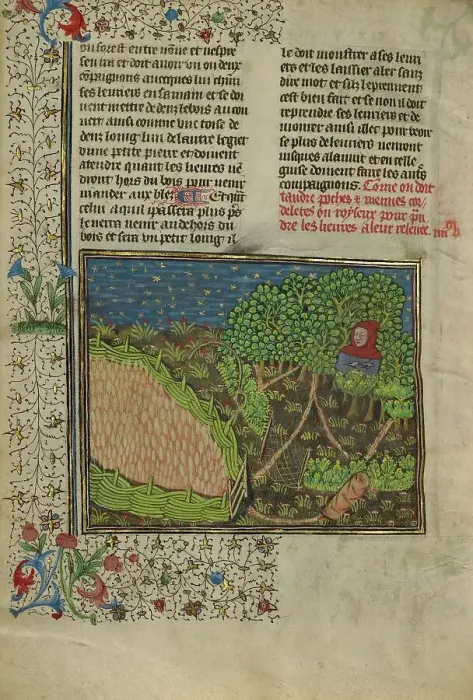 ou forest entre none et vespre
seu lin et doit avoir un ou deux
cõpaignons avecques lui chũn
ses levriers en sa main et se doi
vent mettre de deux les bis au cou
vert ainsi comme une toise de
deux loing lun de lautre legier
dune petite pierre et doivent
atendre quant les lievres vẽ
dront hors du bois pour venir
mander aux bles Et qñt
celui a qui il passera plus ps
le verra venir au dehors du
bois et sera un petit loing il
le doit monstrer a ses levri
ers et les laissier aler sanz
dire mot et silz le prennent
cest bien fait et se non il doit
reprendre ses levriers et de
mourer ainsi illec pour veoir
se plus de lievres venront
jusques a la nuit et en celle
guise doivent faire les aut̃s
compaignons. Cõme on doit
tandre poches et menues cor
deletes ou royseux pour pñ
dre les lievres a leur relevee.